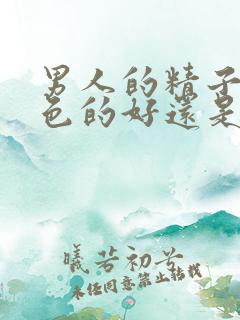 男人的精子
色的好還是
曦若初兮
未经同意禁止转载